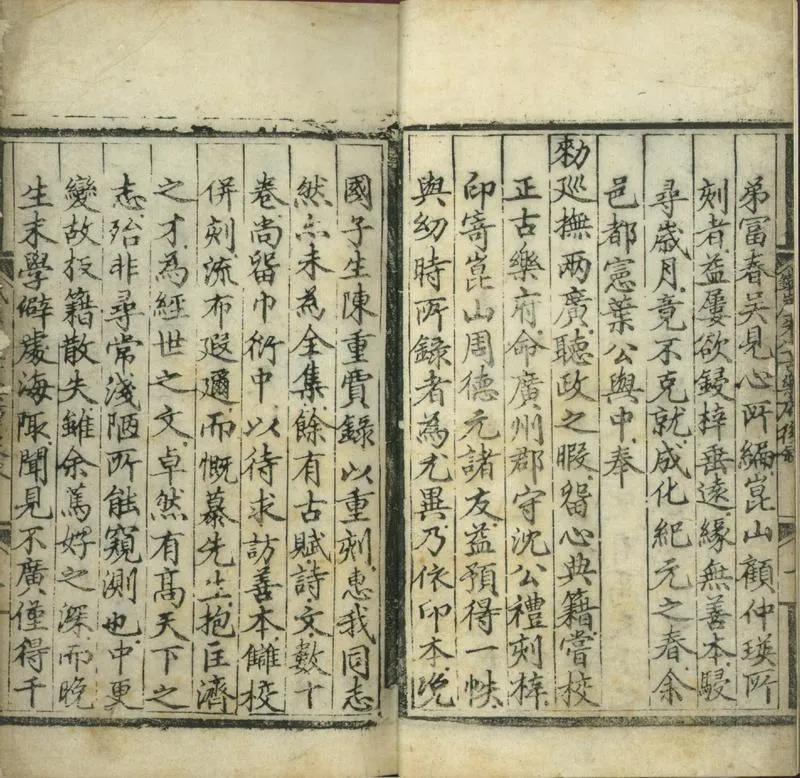 弟富春吳見心所編崑山顧仲瑛所
刻者益屢欲鋟梓垂遠緣無善本駸
尋歲月竟不克就成化紀元之春余
邑都憲葉公與中奉
勑巡撫兩廣聽政之暇留心典籍嘗校
正古樂府命廣州郡守沈公禮刻梓
印寄崑山周德元諸友益預得一帙
與幼時所錄者為尤異乃依印本俛
國子生陳重錄以重刻惠我同志
然亦未為全集餘有古賦詩文數十
卷尚留巾衍中以待求訪善本讎校
併刻流布遐邇而慨慕先生抱匡濟
之才為經世之文卓然有高天下之
志殆非尋常淺陋所能窺測也中更
變故板籍散失雖余篤好之深而晚
生末學僻處海陬聞見不廣僅得千